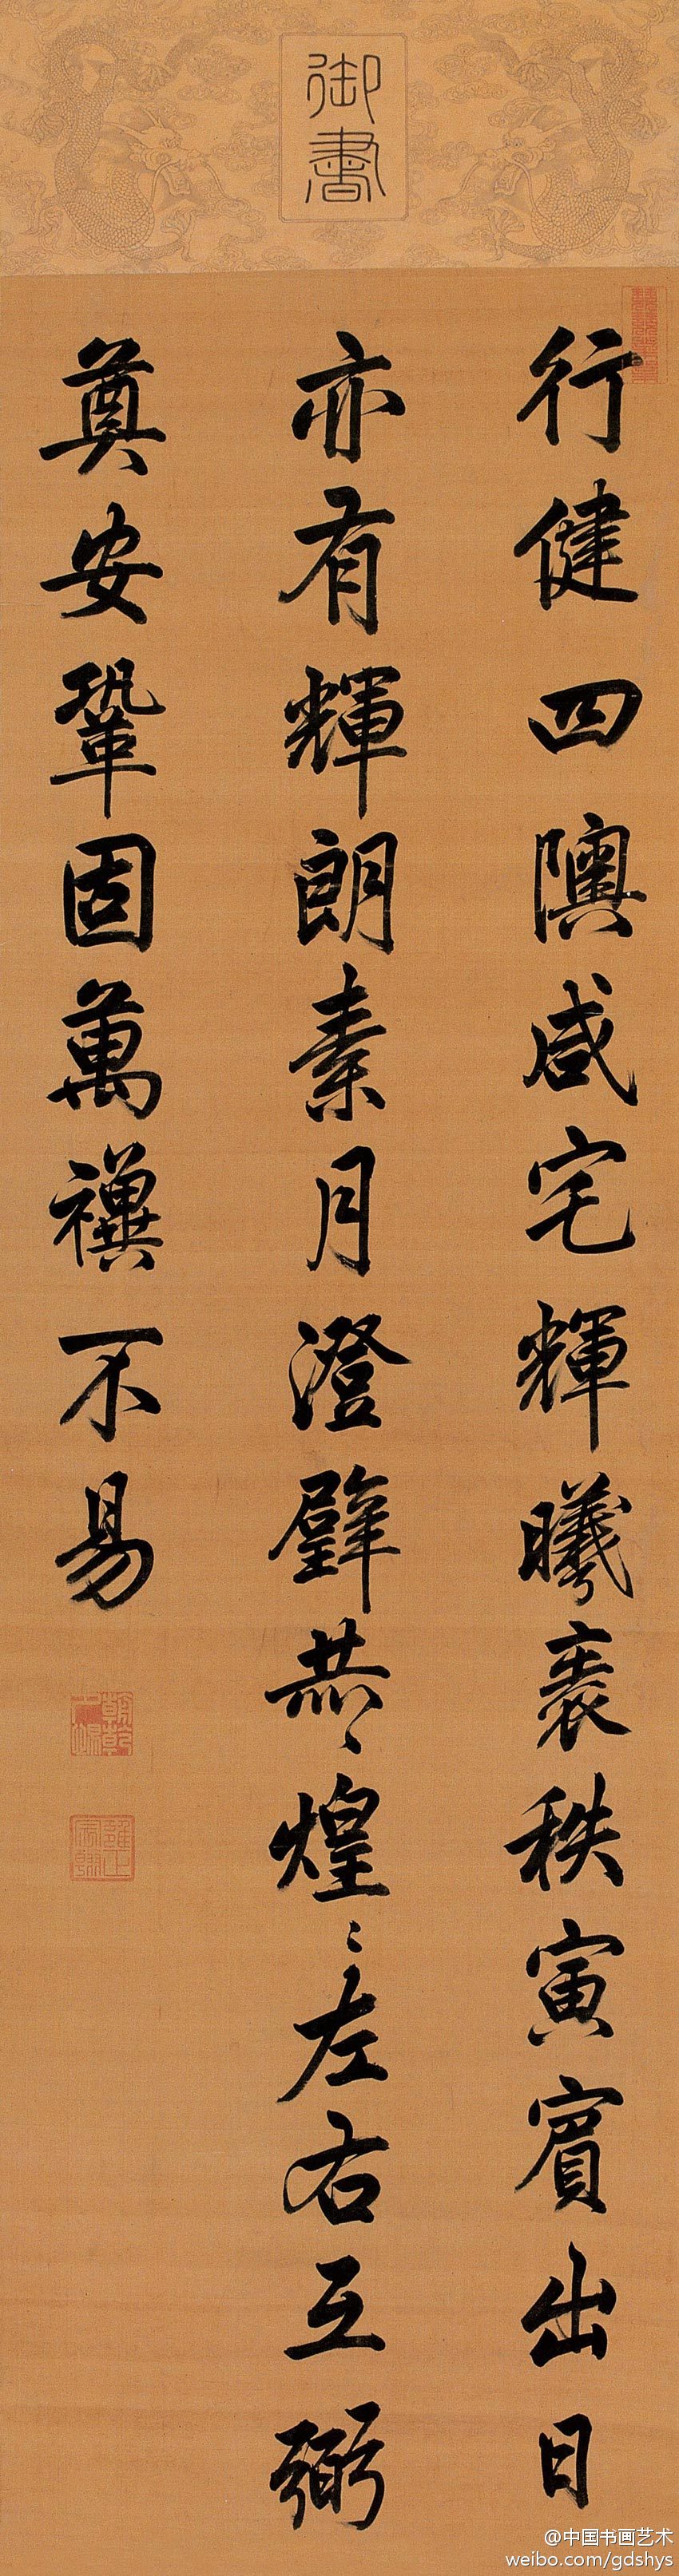 御書
行健四隩咸宅輝曦秩寅賓出日
亦有輝朗素月澄璧恭〻煌〻左右互弼
奠安鞏固萬禩不易
朝乾夕惕
雍正宸翰
@中国书画艺术
weibo.com/gdshys